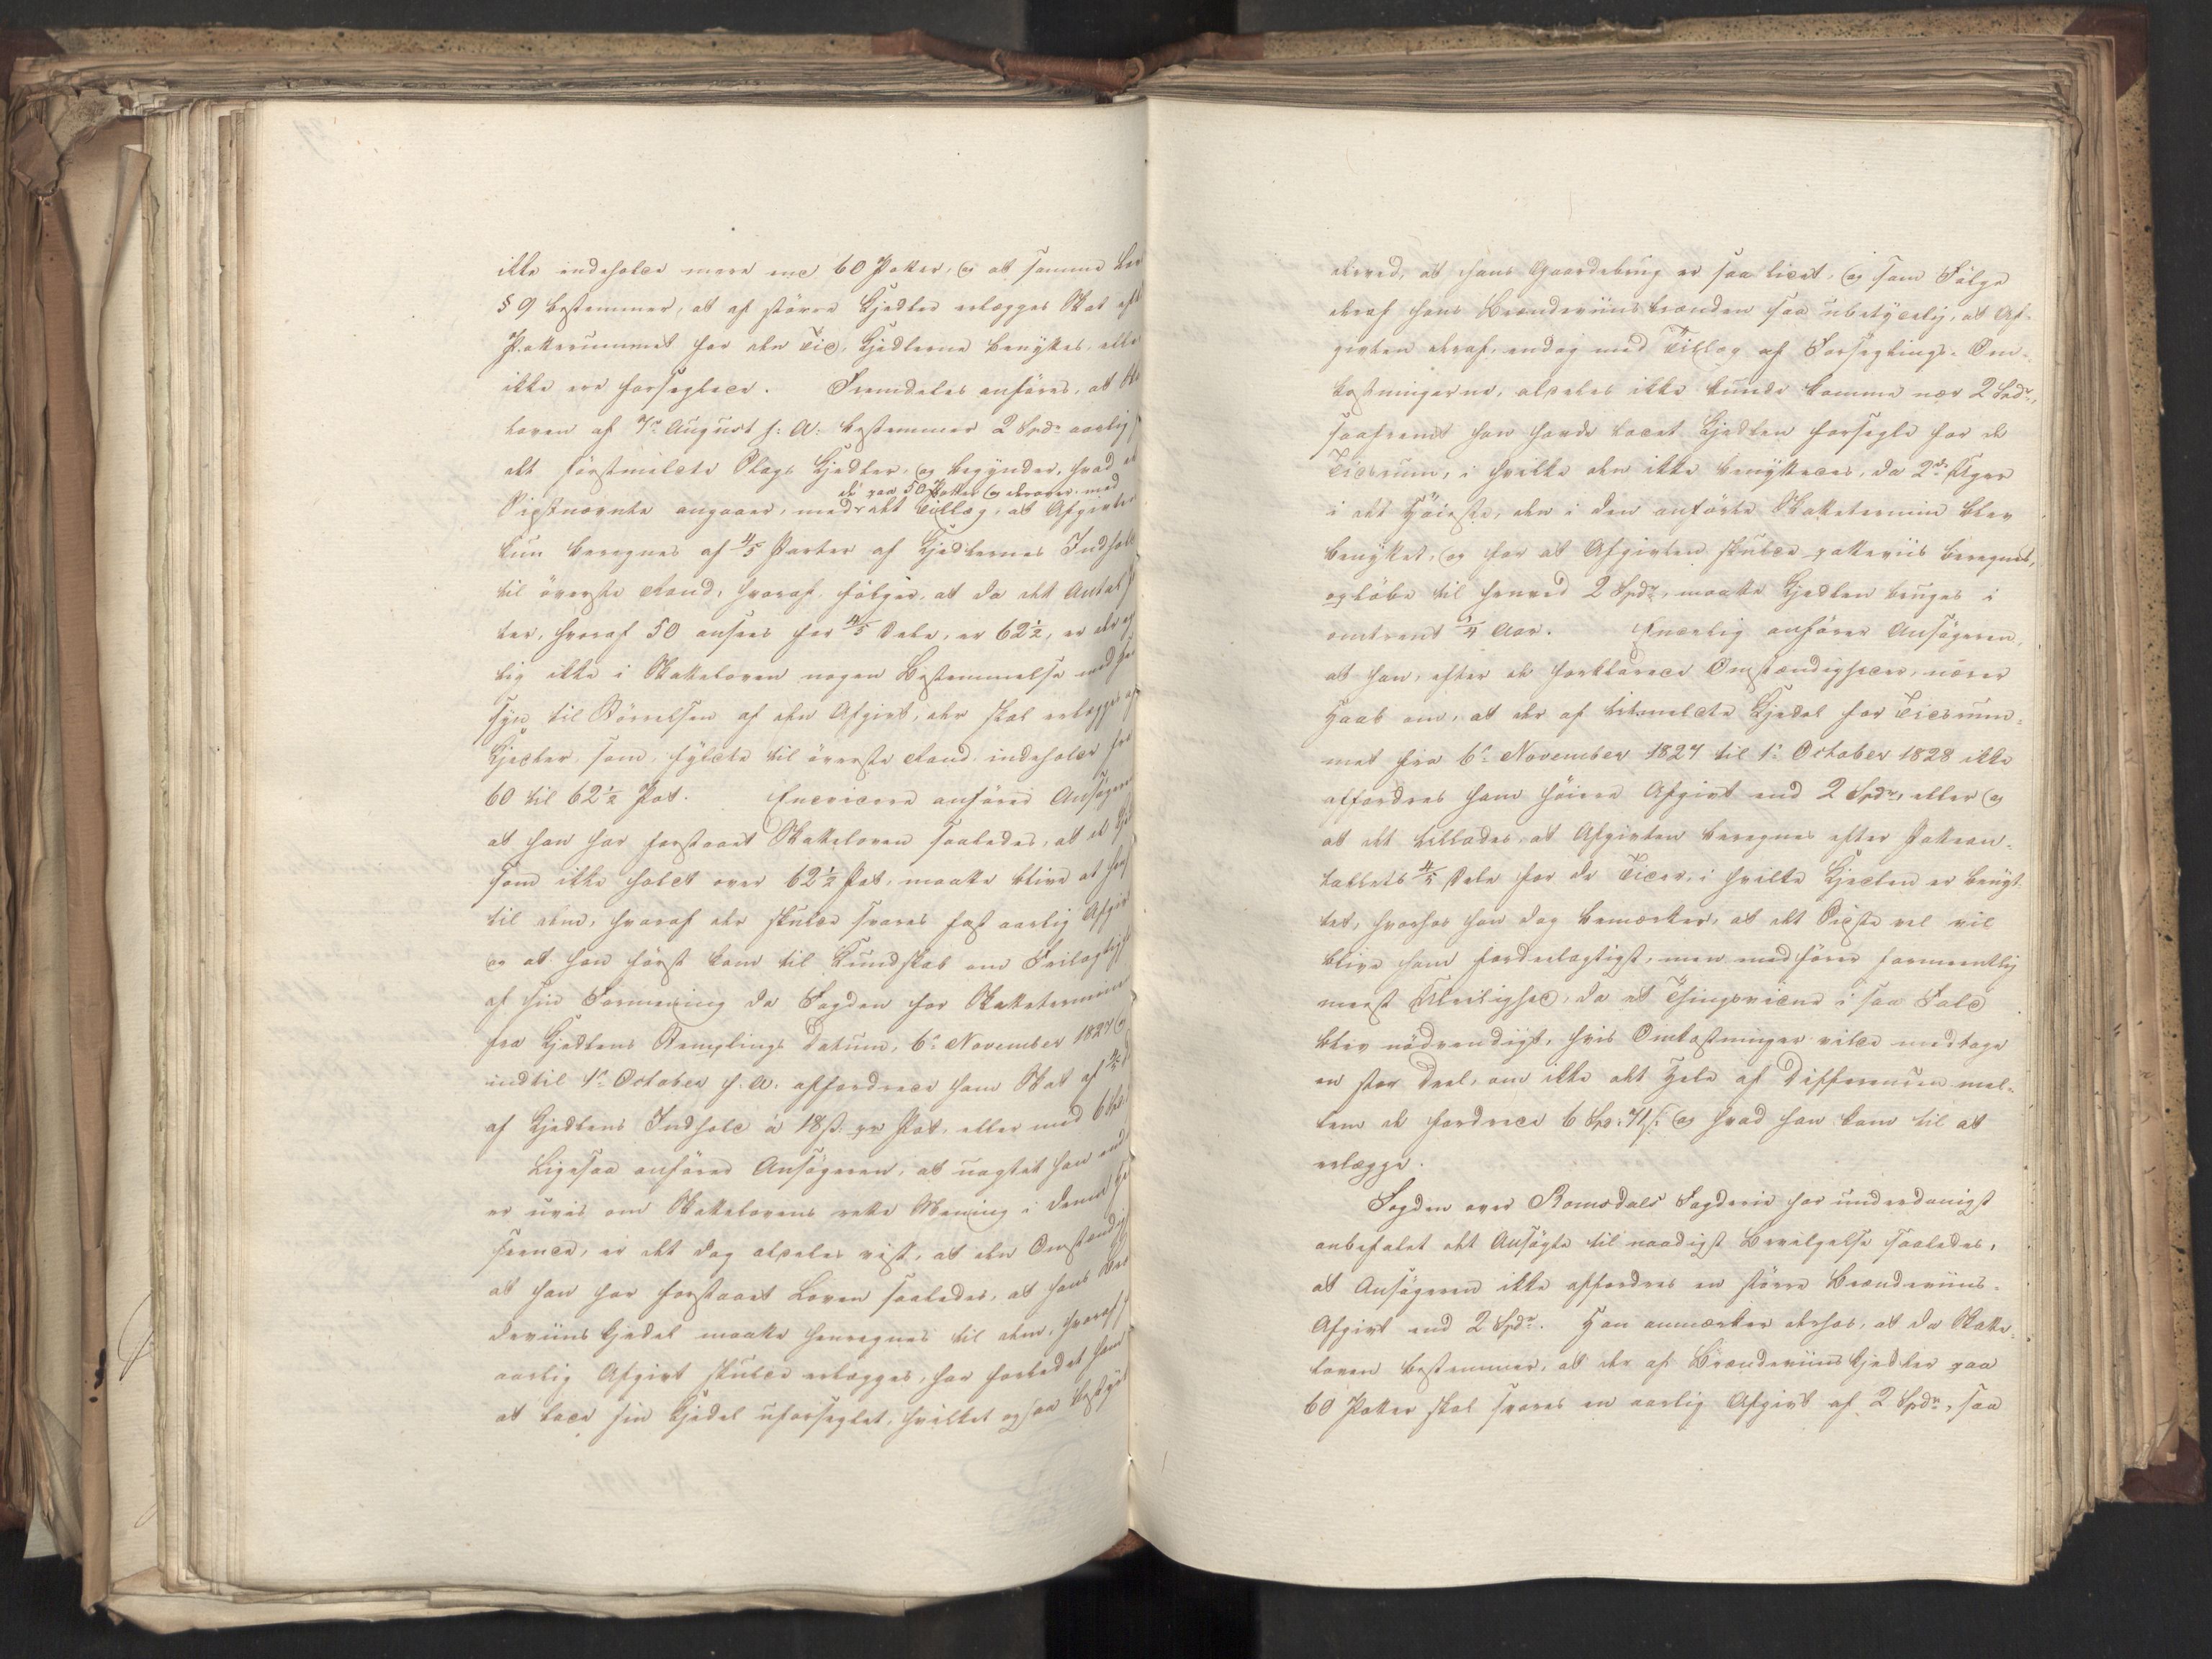 ikke indeholde mere end 60 Potter, og at samme Lov
§ 9 bestemmer, at af større Kjedler erlægges Skat eft
Potterummet for den Tid, Kjedlerne benyttes, elle
ikke ere forseglede. Fremdeles anføres, at
Loven af 7de August f: A: bestemmer 2 Spdr aarlig
alt førstmeldte Slags Kjedler, og begynder, hvad
de paa 50 Potter og derover, med
Sidstnævnte angaaer, med det Tillæg, at Afgivte
kun beregnes af 4/5 Parter af Kjedlernes Indhold
til øverste Rand, hvoraf følger, at da det Antal P
ter, hvoraf 50 ansees for 4/5 Dele, er 62 1/2, er der
lig ikke i Skatteloven nogen Bestemmelse med
syn til Størrelsen af den Afgivt, der skal erlægges af
Kjedler, som, fyldte til øverste Rand, indeholde fra
60 til 62 1/2 Pot. Endvidere anfører Ansøgere
at han har forstaaet Skatteloven saaledes, at et Kje
som ikke holdt over 62 1/2 Pot, maatte blive at hen
til dem, hvoraf der skulde svares fast aarlig Afgivt
og at han først kom til Kundskab om Feilagtigh
af sin Formening da Fogden for Skattetermin
fra Kjedlens Stemplings Datum, 6te November 1827
indtil 1ste October f: A: affordrede ham Skat af 4/5
af Kjedlens Indhold à 18 ß pr Pot, eller med 6 Spd
Ligesaa anfører Ansøgeren, at uagtet han end
er uvis om Skattelovens rette Mening i denne
seende, er det dog aldeles vist, at den Omstændigh
at han har forstaaet Loven saaledes, at hans Bræn
deviins Kjedel maatte henregnes til dem, hvoraf
aarlig Afgivt skulde erlægges, har forledet ham
at lade sin Kjedel uforseglet, hvilket ogsaa bestyrk
derved, at hans Gaardsbrug er saa lidet, og som Følge
deraf hans Brændeviinsbrænden saa ubetydelig, at Af¬
givten deraf, endog med Tillæg af Forseglings-Om¬
kostningerne, aldeles ikke kunde komme nær 2 Spdr,
saafremt han havde ladet Kjedlen forsegle for de
Tidsrum, i hvilke den ikke benyttedes, da 2de Uger
i det Høieste, den i den anførte Skattetermin blev
benyttet, og for at Afgivten skulde potteviis beregnet,
opløbe til henved 2 Spdr, maatte Kjedlen bruges i
omtrent 1/4 Aar. Endelig anfører Ansøgeren,
at han, efter de forklarede Omstændigheder, nærer
Haab om, at der af bemeldte Kjedel for Tidsrum¬
met fra 6te November 1827 til 1ste October 1828 ikke
affordres ham høiere Afgivt end 2 Spdr, eller og
at det tillades, at Afgivten beregnes efter Pottean¬
tallets 4/5 Dele for de Tider, i hvilke Kjedlen er benyt
tet, hvorhos han dog bemærker, at det Sidste vel vil
blive ham fordeelagtigst, men medfører formeentlig
meest Uleilighed, da et Thingsvidne i saa Fald
blev nødvendigt, hvis Omkostninger vilde medtage
en stor Deel, om ikke det Hele af Differencen mel¬
lem de fordrede 6 Spd: 71 ß: og hvad han kom til at
erlægge.
Fogden over Romsdals Fogderie har underdanigst
anbefalet det Ansøgte til naadigst Bevilgelse saaledes,
at Ansøgeren ikke affordres en større Brændeviins¬
Afgivt end 2 Spdr. Han anmærker derhos, at da Skatte¬
loven bestemmer, at der af Brændeviins Kjedler paa
60 Potter skal svares en aarlig Afgivt af 2 Spdr, saa